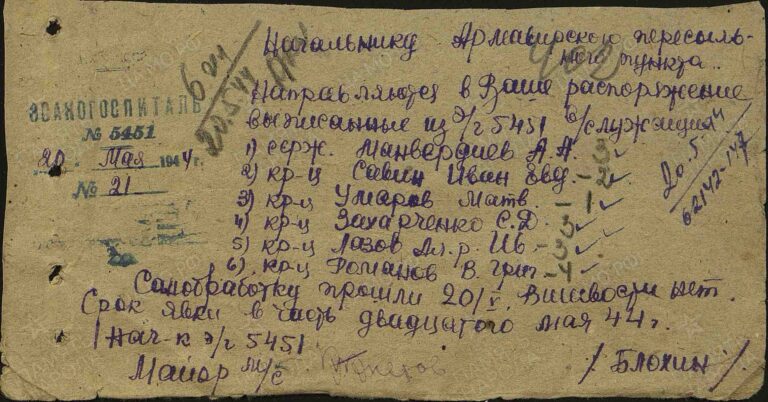 Начальнику Армавирского пересыль-
ного пункта.
Направляются в Ваше распоряжение
выписанные из э/г 5451 в/служащия
ЭВАКОГОСПИТАЛЬ
№ 5451
20 Мая 1944 г.
№ 21
20.5.44
1) серж. Манвердиев А.А. - 3
2) кр-ц Савин Иван Евд. - 2
3) кр-ц Умаров Матв. - 1
4) кр-ц Захарченко С.Д. - 3
5) кр-ц Лазов Ал-р. Ив - 3
6) кр-ц Романов В. Григ - 4
20.5.44
62142-147
Санобработку прошли 20/V. Вшивости нет.
Срок явки в часть двадцатого мая 44 г.
Нач-к э/г 5451
Майор м/с
/ Блохин /